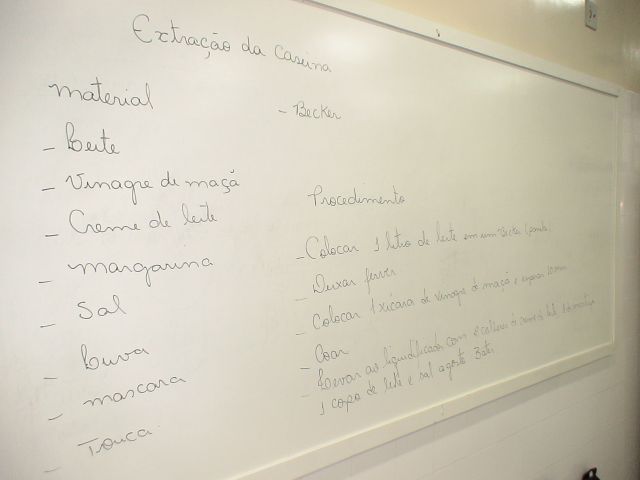 Extração da caseina
Material
- Becker
- Leite
- Vinagre de maçã
- Creme de leite
- Margarina
- Sal
- Luva
- mascara
- Touca
Procedimento
- Colocar 1 litro de leite em um Becker (panela)
- Deixar ferver
- Colocar 1 xicara de vinagre de maçã e
- Coar
- Levar ao liquidificador com colheres de creme de leite
1 copo de leite e sal a gosto Bater